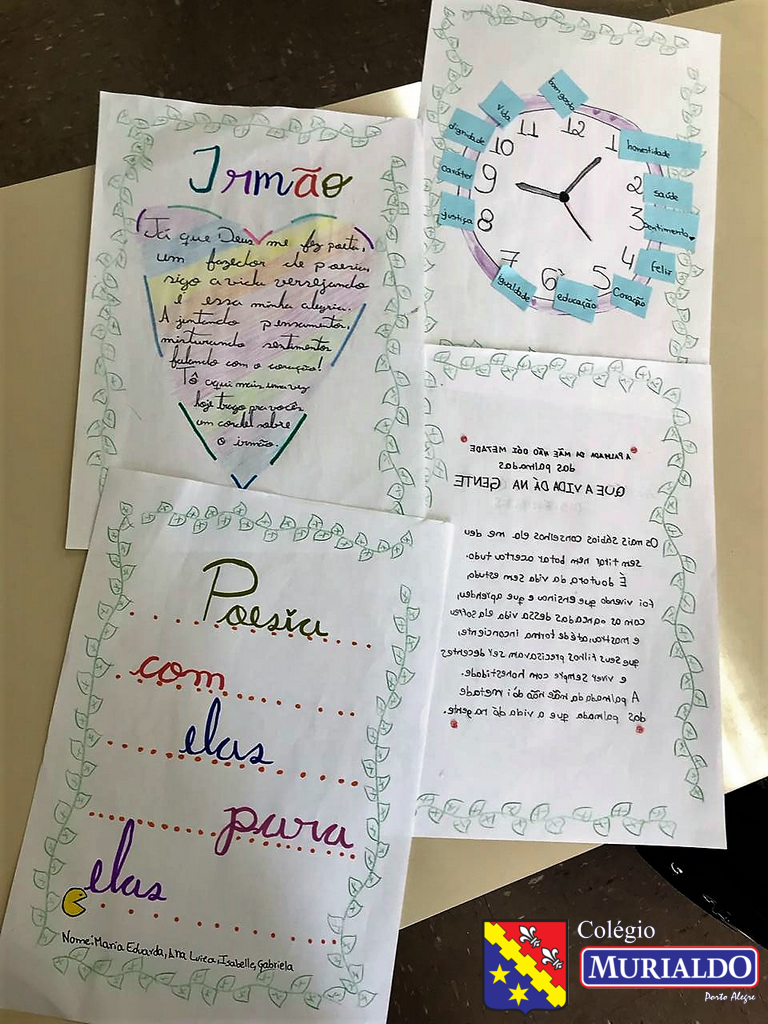 Irmão
Já que Deus me fez poeta,
um fazedor de poesia,
sigo a vida versejando
é essa minha alegria.
Ajuntando pensamentos,
misturando sentimentos
falando com o coração!
Tô aqui mais uma vez
hoje trago pra vocês
um cordel sobre
o irmão.
bom gosto
vida
dignidade
caráter
justiça
igualdade
educação
Coração
Feliz
Sentimento
saúde
honestidade
12
1
2
3
4
5
6
7
8
9
10
11
A PALMADA DA MÃE NÃO DÓI METADE
das palmadas
QUE A VIDA DÁ NA GENTE
Os mais sábios conselhos ela me deu
sem tirar nem botar acerta tudo.
É doutora da vida sem estudo,
foi vivendo que ensinou e que aprendeu,
com as pancadas dessa vida ela sofreu
e mostrou até de forma inconciente,
que seus filhos precisavam ser decentes
e viver sempre com honestidade.
A palmada da mãe não dói metade
das palmada que a vida dá na gente.
Poesia
com
elas
para
elas
Nome: Maria Eduarda, Ana Luiza, Isabelle, Gabriela
Colégio
MURIALDO
Porto Alegre